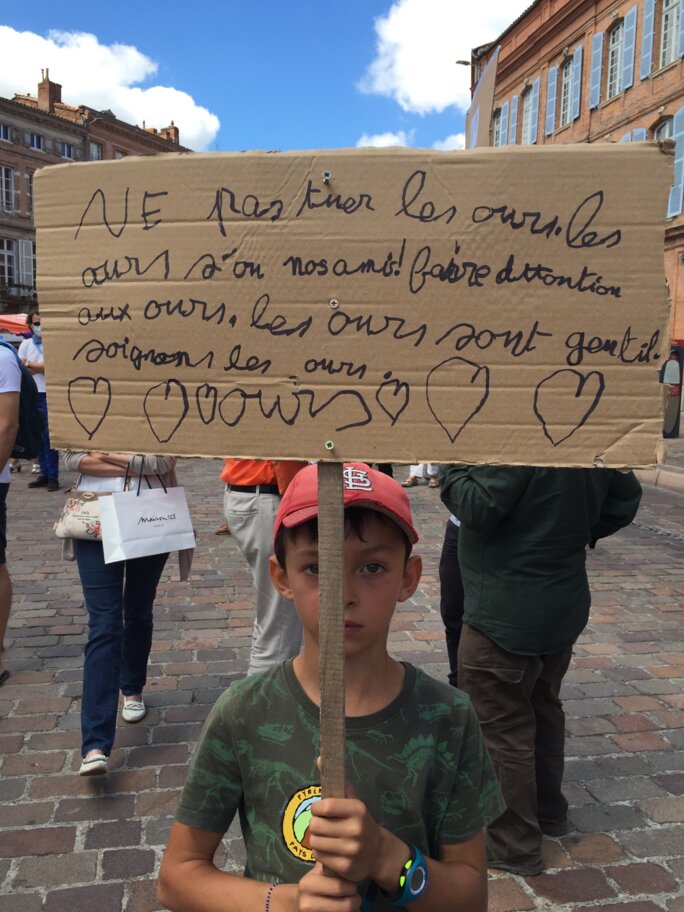 NE pas tuer les ours. les
ours s'on nos amis! faire attontion
aux ours. les ours sont gentil.
soignons les ours.
ours
maison 123
PARIS
STL
PAYS